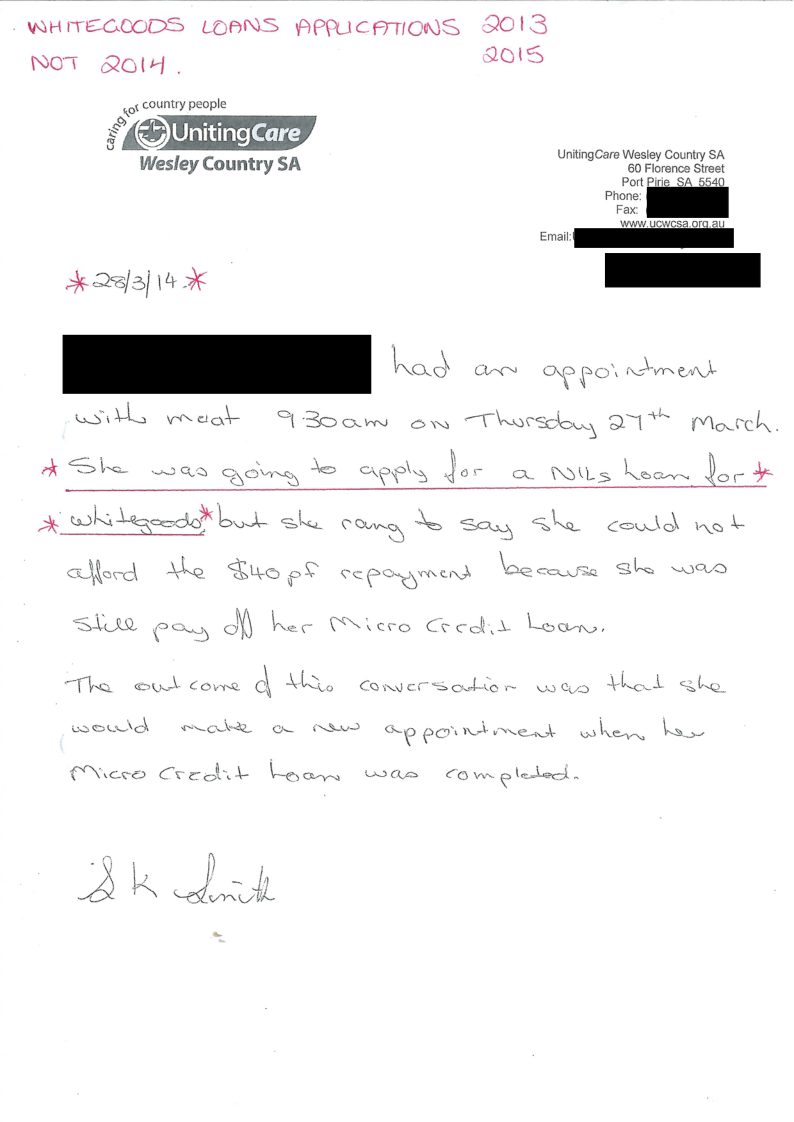 WHITEGOODS LOANS APPLICATIONS 2013
NOT 2014. 2015
caring for country people
UnitingCare
Wesley Country SA
UnitingCare Wesley Country SA
60 Florence Street
Port Pirie SA 5540
Phone:
Fax:
www.ucwcsa.org.au
Email:
*28/3/14.*
had an appointment
with meat 9.30am on Thursday 27th March.
* She was going to apply for a NILs Loan for *
* whitegoods * but she rang to say she could not
afford the $40pf repayment because she was
still pay off her Micro Credit Loan.
The outcome of this conversation was that she
would make a new appointment when her
Micro Credit Loan was completed.
S K Smith